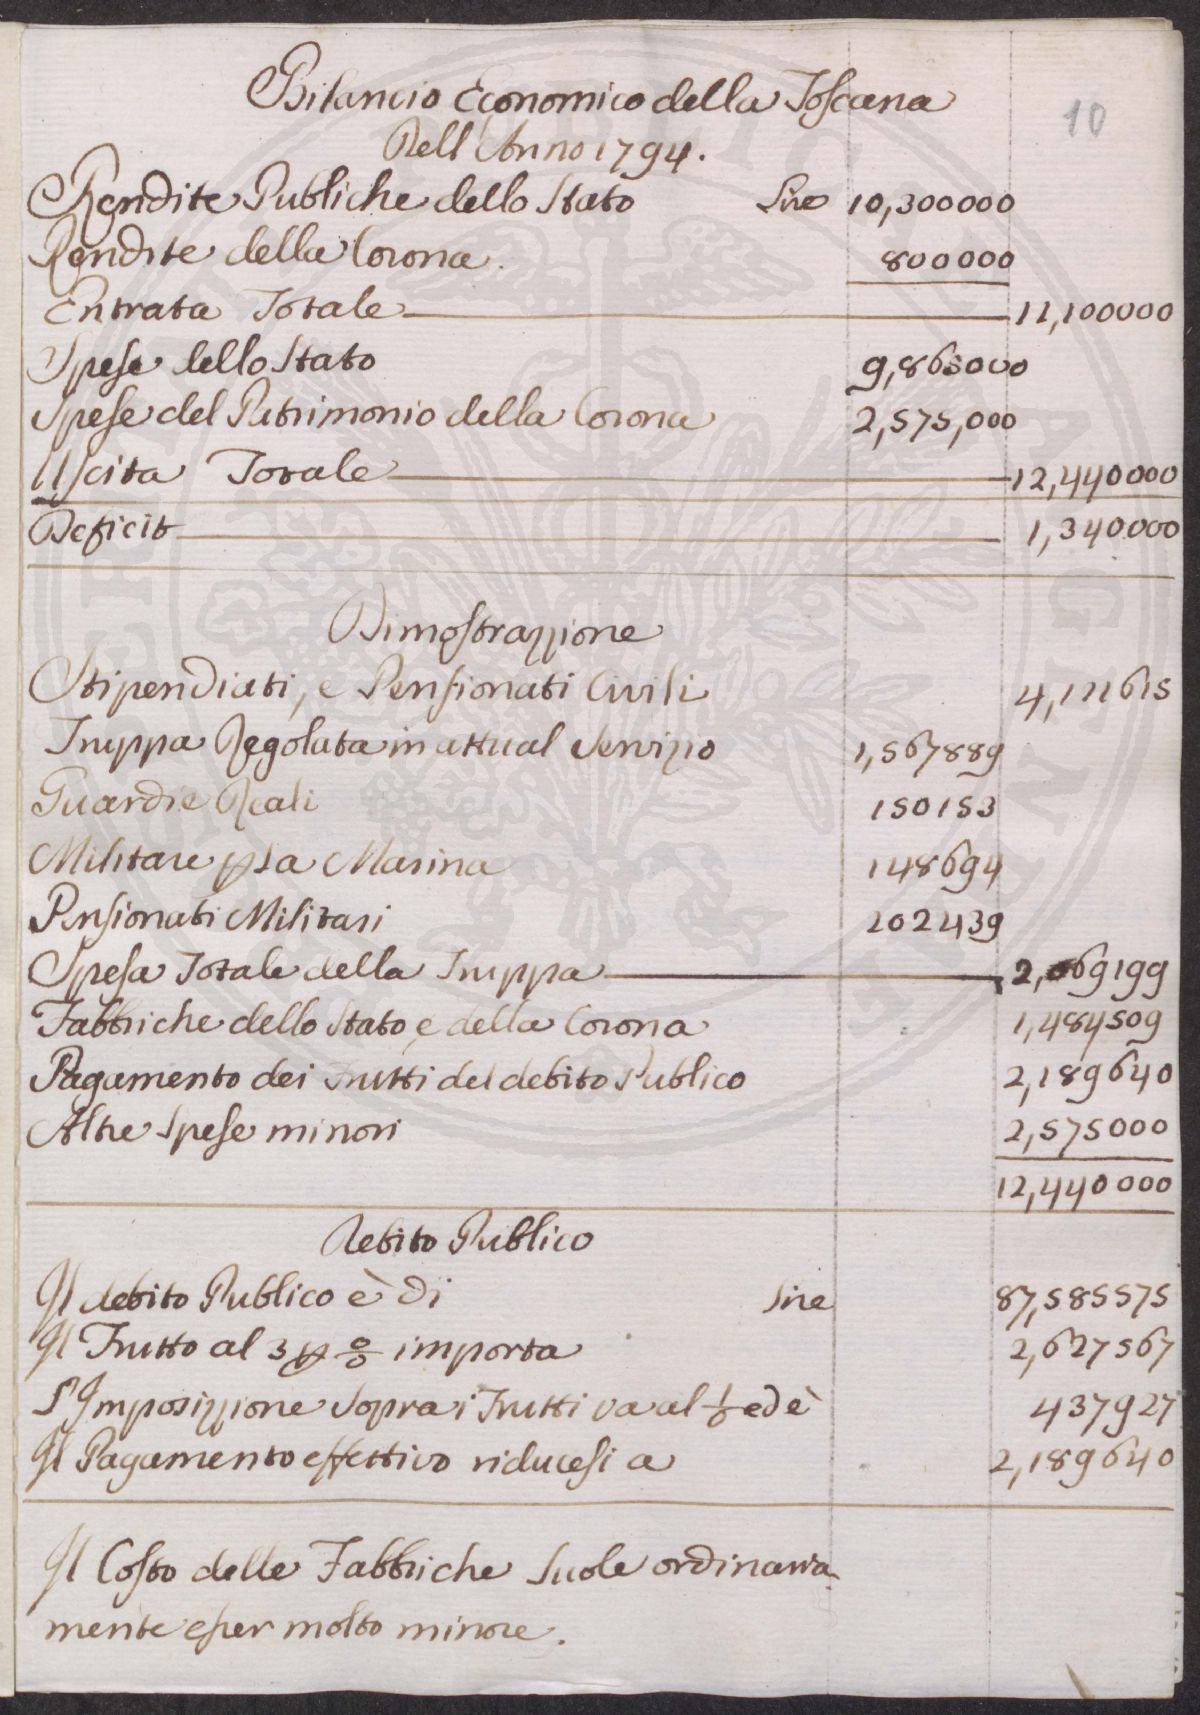 Bilancio Economico della Toscana
10
Dell'Anno 1794.
Rendite Publiche dello Stato Lire 10,300000
Rendite della Corona. 800000
Entrata Totale 11,100000
Spese dello Stato 9,865000
Spese del Patrimonio della Corona 2,575,000
Uscita Totale 12,440000
Deficit 1,340000
Dimostrazzione
Stipendiati, e Pensionati Civili 4,121615
Truppa Regolata in attual Servizio 1,567889
Guardie Reali 150153
Militare p la Marina 148694
Pensionati Militari 202439
Spesa Totale della Truppa 2,069199
Fabbriche dello Stato, e della Corona 1,484509
Pagamento dei Frutti del debito Publico 2,189640
Altre Spese minori 2,575000
12,440000
Debito Publico
Il debito Publico è di Lire 87,585575
Il Frutto al 3 p % importa 2,627567
L'Imposizzione sopra i Frutti va al ed è 437927
Il Pagamento effettivo riducesi a 2,189640
Il Costo delle Fabbriche suole ordinaria-
mente esser molto minore.